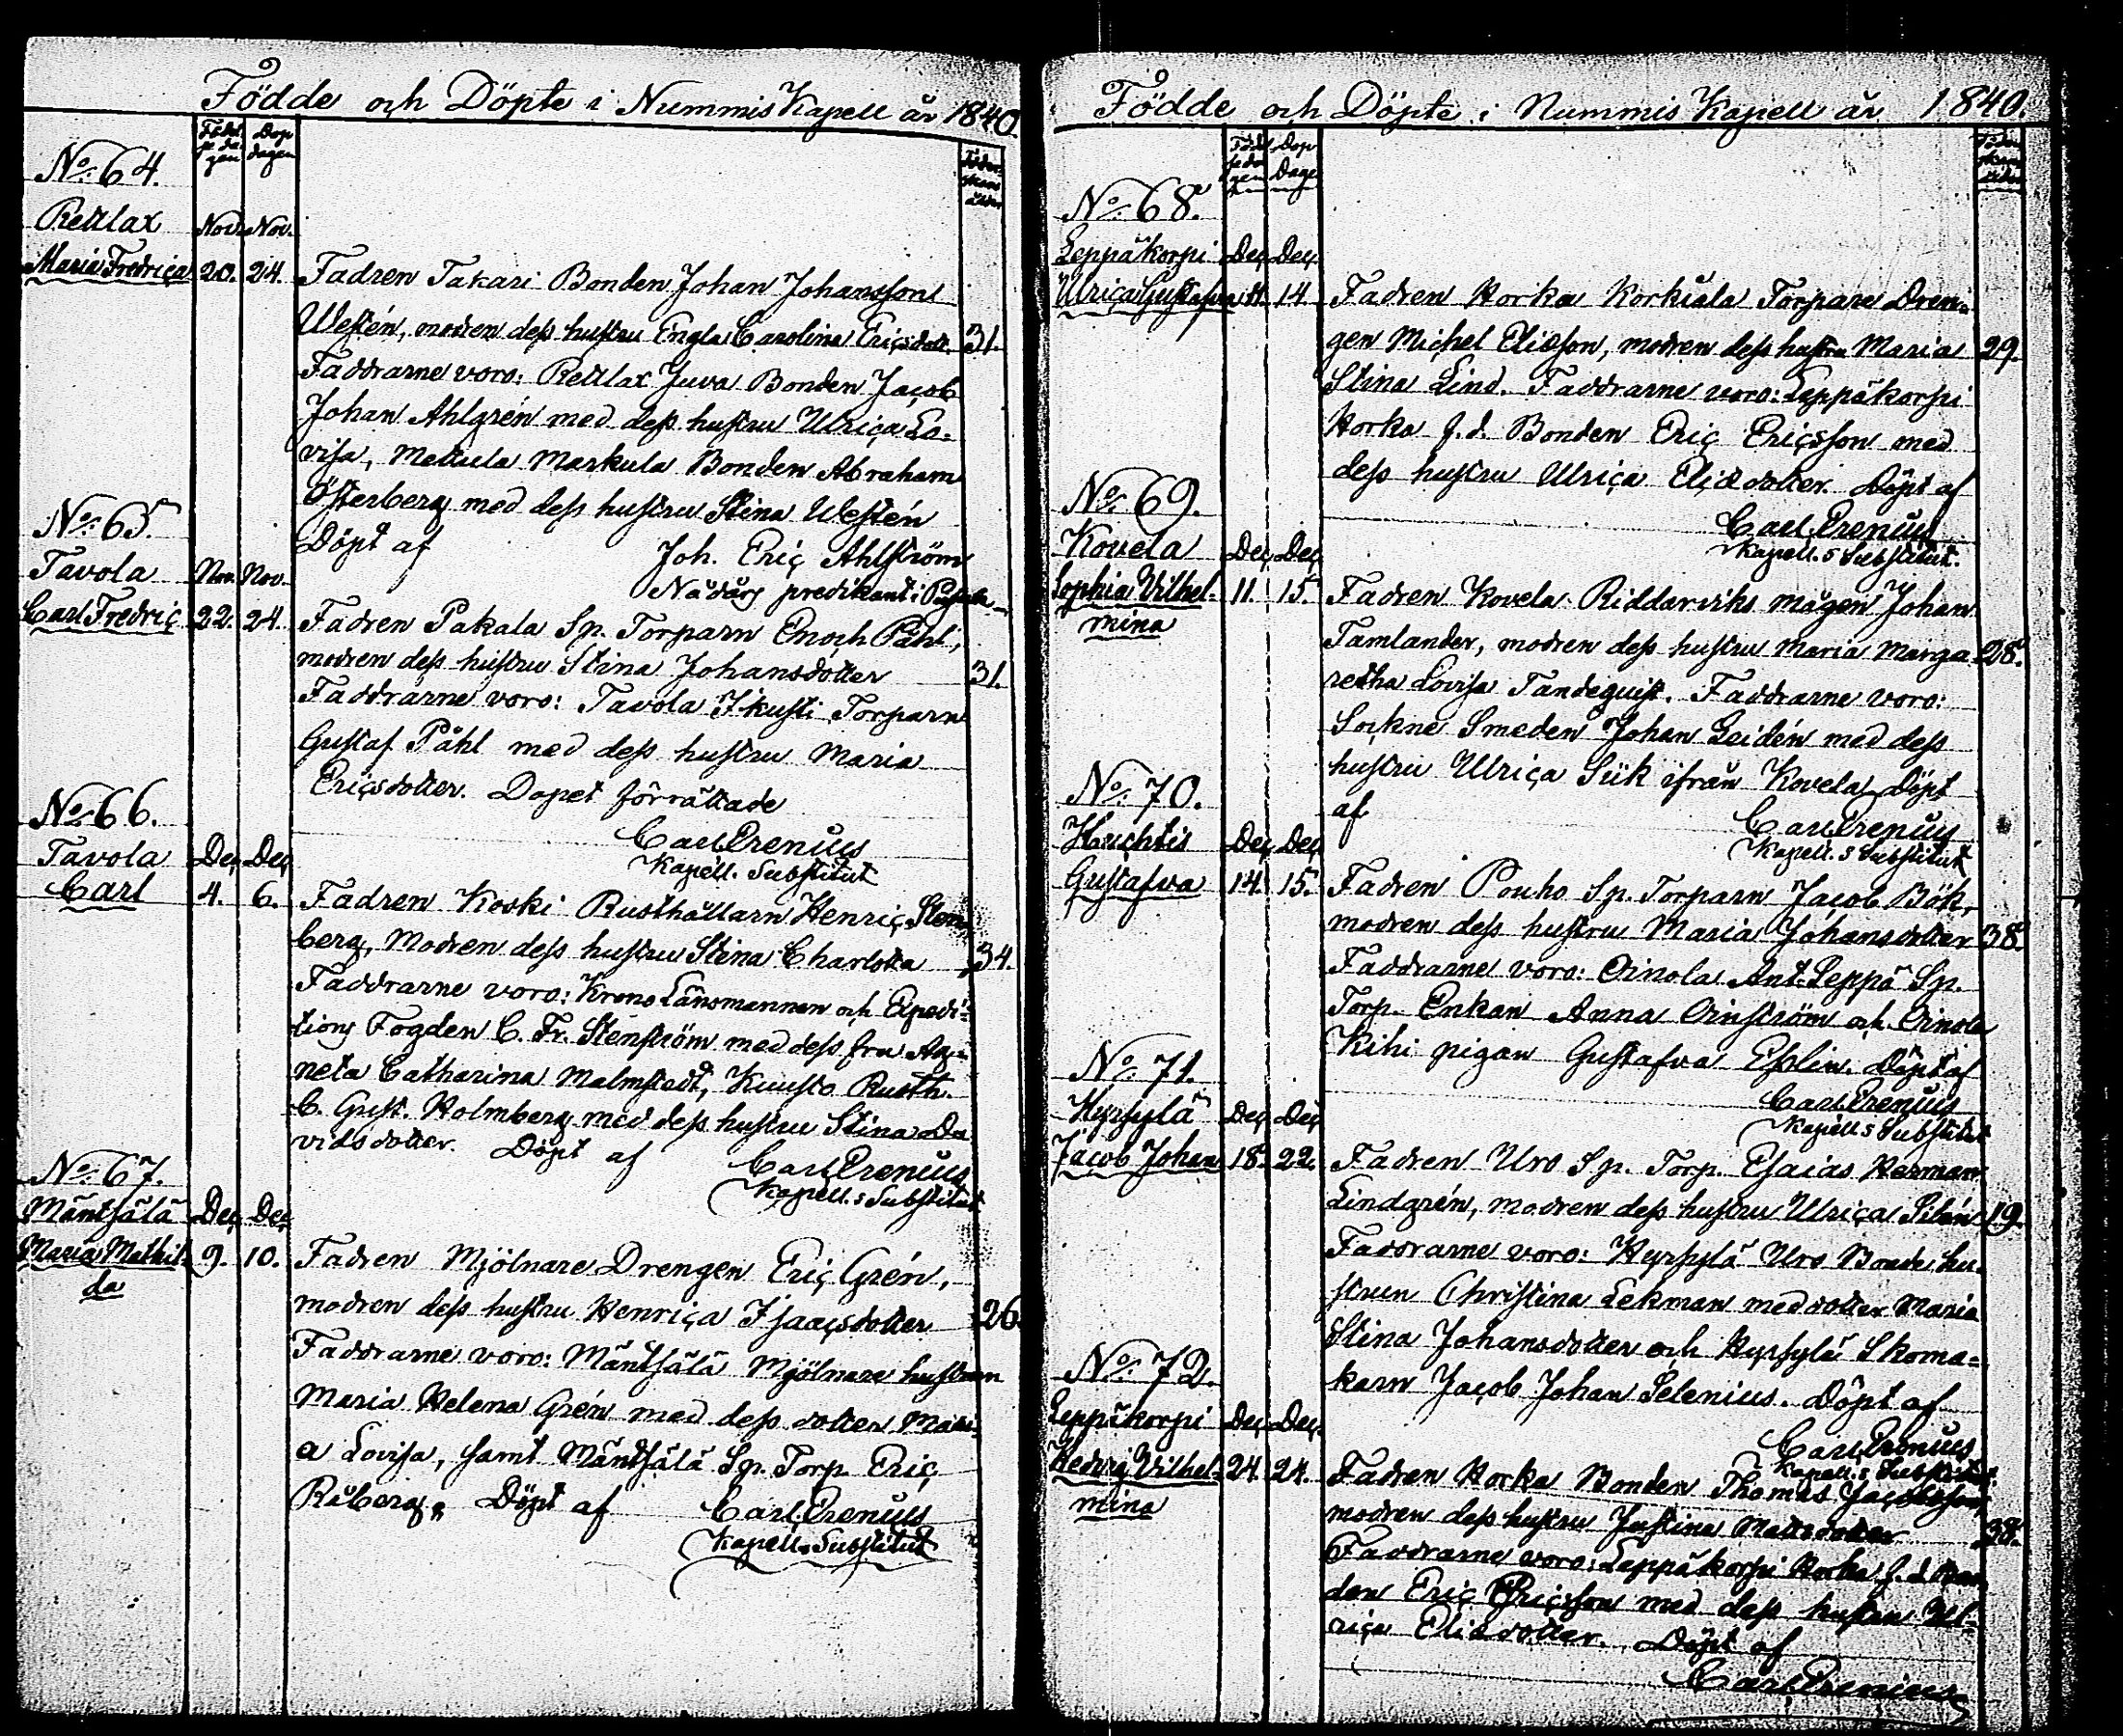 Födde och Döpte i Nummis Kapell år 1840.
Födel
se da
gen
Dop
dagen
Föder
skans
ålder
No. 64.
Rettlax
Nov. Nov.
Maria Fredriça 20. 24. Fadren Takari Bonden Johan Johansson
Westén, modren dess hustru Engla Carolina Ericsdott. 31.
Faddrarne voro: Rettlax Juva Bonden Jacob
Johan Ahlgrén med dess hustru Ulriça Lo-
visa, Mettula Markula Bonden Abraham
Österberg med dess hustru Stina Westén
Döpt af Joh. Eriç Ahlström
Nådårs predikant i
No. 65.
Tavola Nov. Nov.
Carl Fredriç 22. 24. Fadren Pakala Sp. Torparn Enoch Påhl,
modren dess hustru Stina Johansdotter 31.
Faddrarne voro: Tavola Ikusti Torparn
Gustaf Påhl med dess hustru Maria
Eriçsdotter. Dopet förrättade
Carl Prenius
Kapell. Substitut
No. 66.
Tavola Deç Deç
Carl 4. 6. Fadren Koski Rusthållarn Henriç Sten-
berg, Modren dess hustru Stina Charlotta 34.
Faddrarne voro: Krono Länsmannen och Expedi-
tions Fogden C. Fr. Stenström med dess fru Ag-
neta Catharina Malmstedt, Kuusto Rusth.
C. Gust. Holmberg med dess hustru Stina Da
vidsdotter. Döpt af Carl Prenius
Kapell.s Substitut
No. 67.
Mäntsälä Deç Deç
Maria Mathil- 9. 10. Fadren Mjölnare Drengen Eriç Grén,
da
modren dess hustru Henriça Isaaçsdotter 26.
Faddrarne voro: Mäntsälä Mjölnare hustrun
Maria Helena Grén med dess dotter Mari-
a Lovisa, samt Mäntsälä Sp. Torp. Eriç
Råberg. Döpt af Carl Prenius
Kapell.s Substitut
Födde och Döpte i Nummis Kapell år 1840.
Födel
se da
gen
Dop
Dage
Föder
skans
ålder
No. 68.
Leppäkorpi Deç Deç
Ulriça Gustafva 11. 14. Fadren Horka Korkiala Torpare Dren-
gen Michel Eliasson, modren dess hustru Maria 29.
Stina Lind. Faddrarne voro: Leppäkorpi
Horka f.d. Bonden Eriç Eriçsson med
dess hustru Ulriça Eliædotter. Döpt af
Carl Prenius
Kapell.s Substitut.
No. 69.
Kovela Deç Deç
Sophia Vilhel- 11. 15. Fadren Kovela Riddarviks mågen Johan
mina
Tamlander, modren dess hustru Maria Marga- 28.
retha Lovisa Tandequist. Faddrarne voro:
Sockne Smeden Johan Leidén med dess
hustru Ulriça Siik ifrån Kovela. Döpt
af Carl Prenius
Kapell.s Substitut
No. 70.
Huchtis Deç Deç
Gustafva 14. 15. Fadren Pouho Sp. Torparn Jacob Bök,
modren dess hustru Maria Johansdotter 38.
Faddrarne voro: Oinola Ant. Seppä Sp.
Torp. Enkan Anna Oinström och Oinola
Kihi pigan Gustafva Eklin. Döpt af
Carl Prenius
Kapell.s Substitut
No. 71.
Hyrsylä Deç Deç
Jacob Johan 18. 22. Fadren Uro Sp. Torp. Esaias Herman
Lindgrén, modren dess hustru Ulriça Silén 19.
Faddrarne voro: Hyrsylä Uro Bonde hu-
strun Christina Lekman med dotter Maria
Stina Johansdotter och Hyrsylä Skoma-
karn Jacob Johan Selenius. Döpt af
Carl Prenius
Kapell.s Substitut.
No. 72.
Leppäkorpi Deç Deç.
Hedvig Vilhel- 24. 24. Fadren Horka Bonden Thomas Jacobsson,
mina
modren dess hustru Justina Mattsdotter 38.
Faddrarne voro: Leppäkorpi Horka f.d. Bon
den Eriç Eriçsson med dess hustru Ul-
riça Eliædotter. Döpt af
Carl Prenius